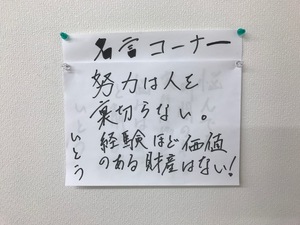 名言コーナー
努力は人を
裏切らない。
経験ほど価値
のある財産はない!
いとう